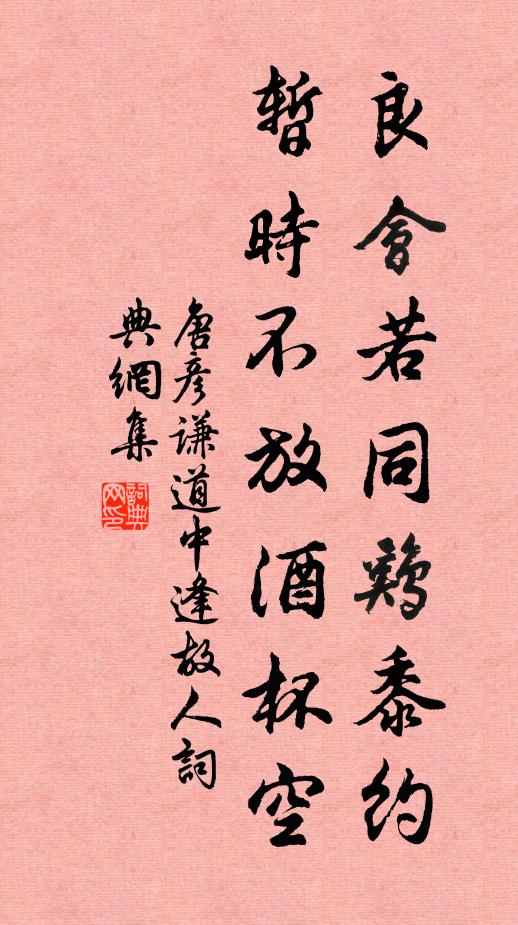 良會若同鷄黍約
暫時不放酒杯空
唐彥謙道中逢故人詞
典網集
詞典
网印